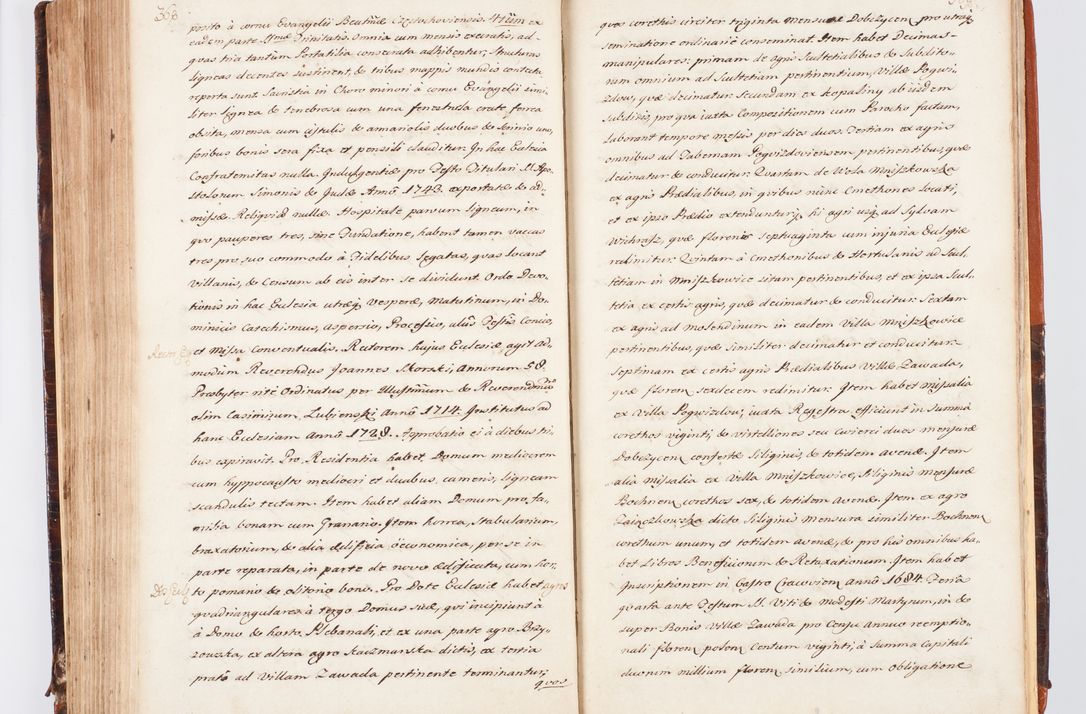 368
posito à cornu Evangelii Beatmæ Częstochoviensis. 4tūm ex
eadem parte SSmæ Trinitatis. omnia cum mensis execratis, ad
quas tria tantum Portatilia consecrata adhibentur, structuras
ligneas decentes sustinent, & tribus mappis mundis contecta
reperta sunt. Sacristia in Choro minori à cornu Evangelii simi-
liter lignea & tenebrosa cum una fenestrula crate ferrea
obsita, mensa cum cistulis & armariolis duobus & scrinio uno,
foribus bonis sera fixa et pensili clauditur. In hac Ecclesia
Confraternitas nulla. Indulgentiæ pro Festo Titulari SS. Apo-
stolorum Simonis & Judæ Annō 1743. exportatæ & ad-
missæ. Reliquiæ nullæ. Hospitale parvum ligneum, in
quo pauperes tres, sine Fundatione, habent tamen vaccas
tres pro suo commodo à Fidelibus legatas, quas locant
Villanis, & Censum ab eis inter se dividunt. Ordo Devo-
tionis in hac Ecclesia utræq; Vesperæ, Matutinum, in Do-
minicis Catechismus, aspersio, Processio, aliis Festis Concio,
et Missa Conventualis. Rectorem hujus Ecclesiæ agit Ad-
modum Reverendus Joannes Skorski, Annorum 58.
Presbyter ritè Ordinatus per Illustrissimum & Reverendmū
olim Casimirum Lubienski Annō 1714. Institutus ad
hanc Ecclesiam Annō 1728. Approbatio ei à diebus tri-
bus expiravit. Pro Residentia habet Domum mediocrem
cum hyppocausto mediocri et duabus cameris, ligneam
scandulis tectam. Item habet aliam Domum pro fa-
milia bonam cum Granario. Item horrea, stabularium,
braxatorium, & alia ædificia oeconomica, per se in
parte reparata, in parte de novo ædificata, cum hor-
to pomario & olitorio bono. Pro Dote Ecclesiæ habet agros
quadriangulares à tergo Domus suæ, qui incipiunt à
à Domo & horto Plebanali, et ex una parte agro Boży-
zowska, ex altera agro Kaczmarska dictis, ex tertia
prato ad Villam Zawada pertinente terminantur,
quos
quos corethos circiter triginta mensuræ Dobczycen pro utraq;
seminatione ordinariè conseminat. Item habet Decimas
manipulares: primam de agris Scultetialibus & Subdito-
rum omnium ad Scultetiam pertinentium, Villæ Pogwi-
zdow, quæ decimatur. Secundam ex Kopaliny ab iisdem
subditis, pro qua juxta Compositionem cum Parocho factam,
laborant tempore messis per dies duos. Tertiam ex agris
omnibus ad Tabernam Pogwizdoviensem pertinentibus, quæ
decimatur & conducitur. Quartam de Wola Mniszkowska
ex agris Prædialibus, in quibus nunc Cmethones locati,
et ex ipso Prædio extenduntur; hi agri usq; ad Sylvam
Wichrasz, quæ florenis septuaginta cum injuria Ecclesiæ
redimitur. Quintam à Cmethonibus & Hortulanis ad Scul-
tetiam in Mniszkowice sitam pertinentibus, et ex ipsa Scul-
tetia ex certis agris, quæ decimatur & conducitur. Sextam
ex agris ad molendinum in eadem Villa Mniszkowice
pertinentibus, quæ similiter decimatur et conducitur.
Septimam ex certis agris Prædialibus Villæ Zawada,
quæ floren sexdecem redimitur. Item habet Missalia
ex Villa Pogwizdow, juxta Regestra efficiunt in summa
corethos viginti, & virtelliones seu cwierci duos mensuræ
Dobczycen, consertæ siliginis, & totidem avenæ. Item
alia missalia ex Villa Mniszkowice, siliginis mensuræ
Bochnen, corethos sex, & totidem avenæ. Item ex agro
Zaiączkowska dicto siliginis mensura similiter Bochnen
corethum unum, et totidem avenæ, & pro his omnibus ha-
bet Libros Beneficiorum & Retaxationum. Item habet
Inscriptionem in Castro Cracovien Annō 1684. Feria
quarta ante Festum SS. Viti & Modesti Martyrum, in &
super Bonis Villæ Zawada pro Censu annuo reemptio-
nali floren polon Centum viginti, à Summa Capitali
duorum millium floren similium, cum obligatione